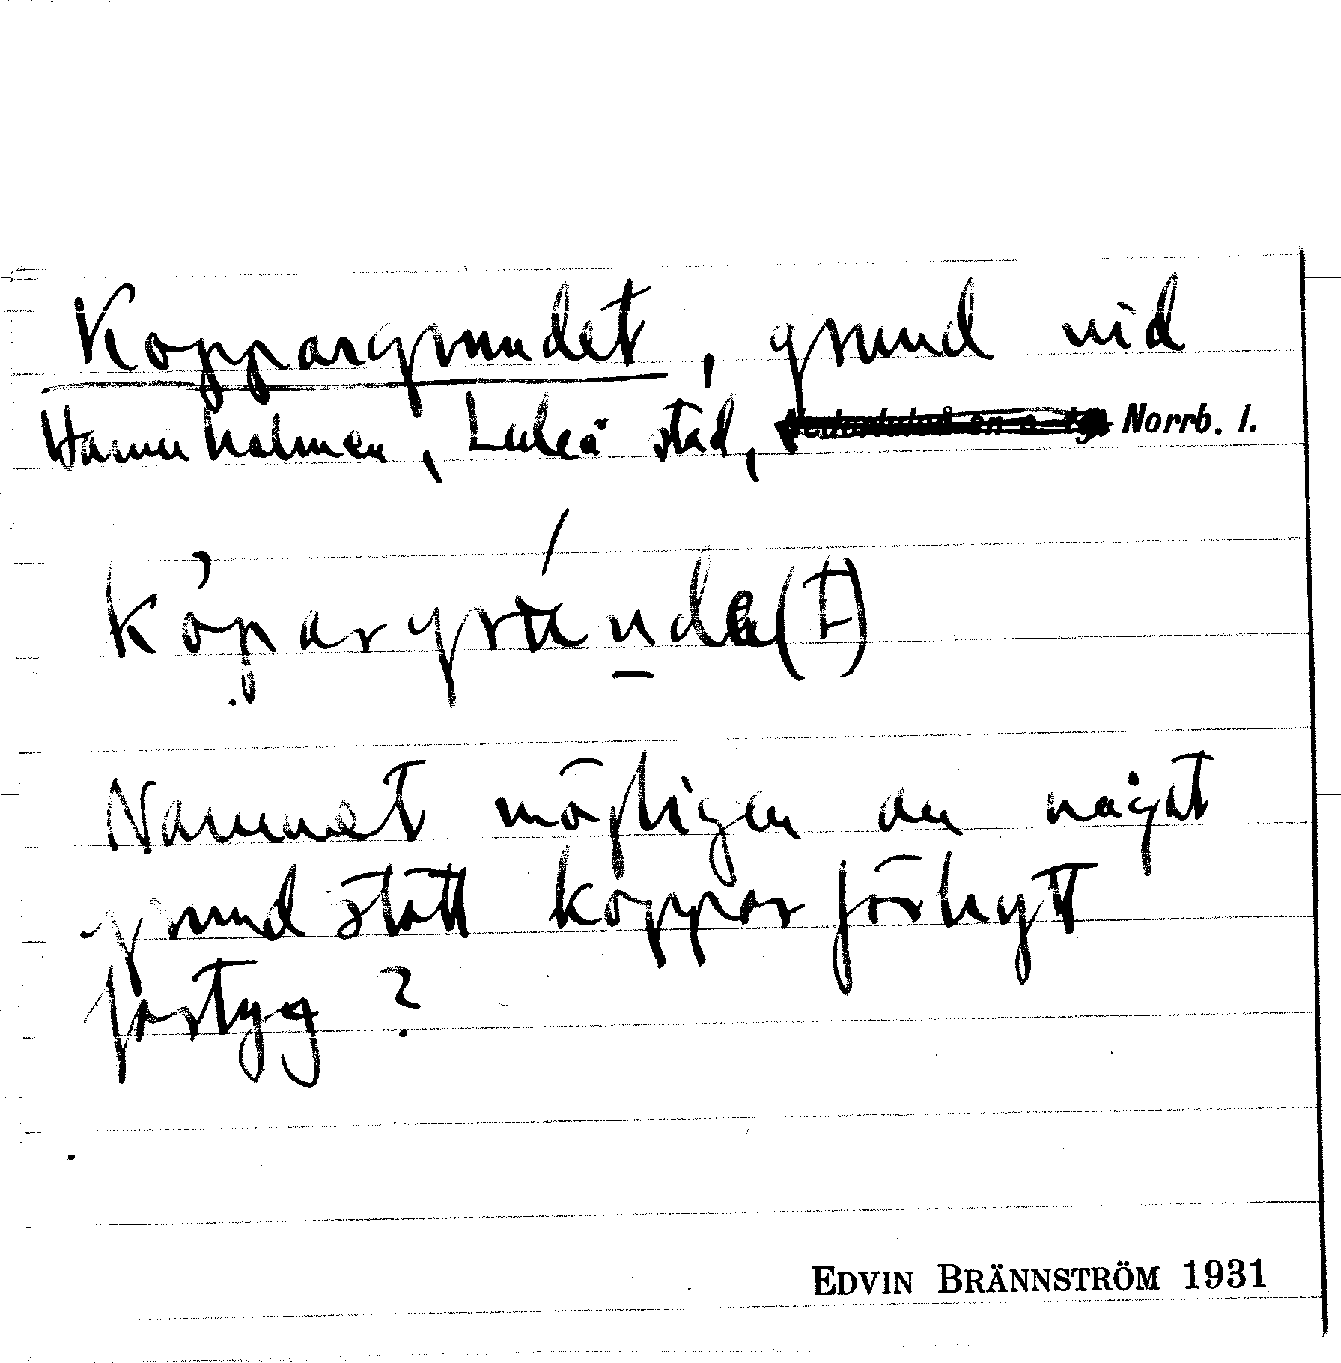 Koppargrundet, grund vid
Hamnholmen, Luleå stad, Norrb. l.
Namnet möjligen av något
grund stött kopparförhytt
fartyg?
EDVIN BRÄNNSTRÖM 1931